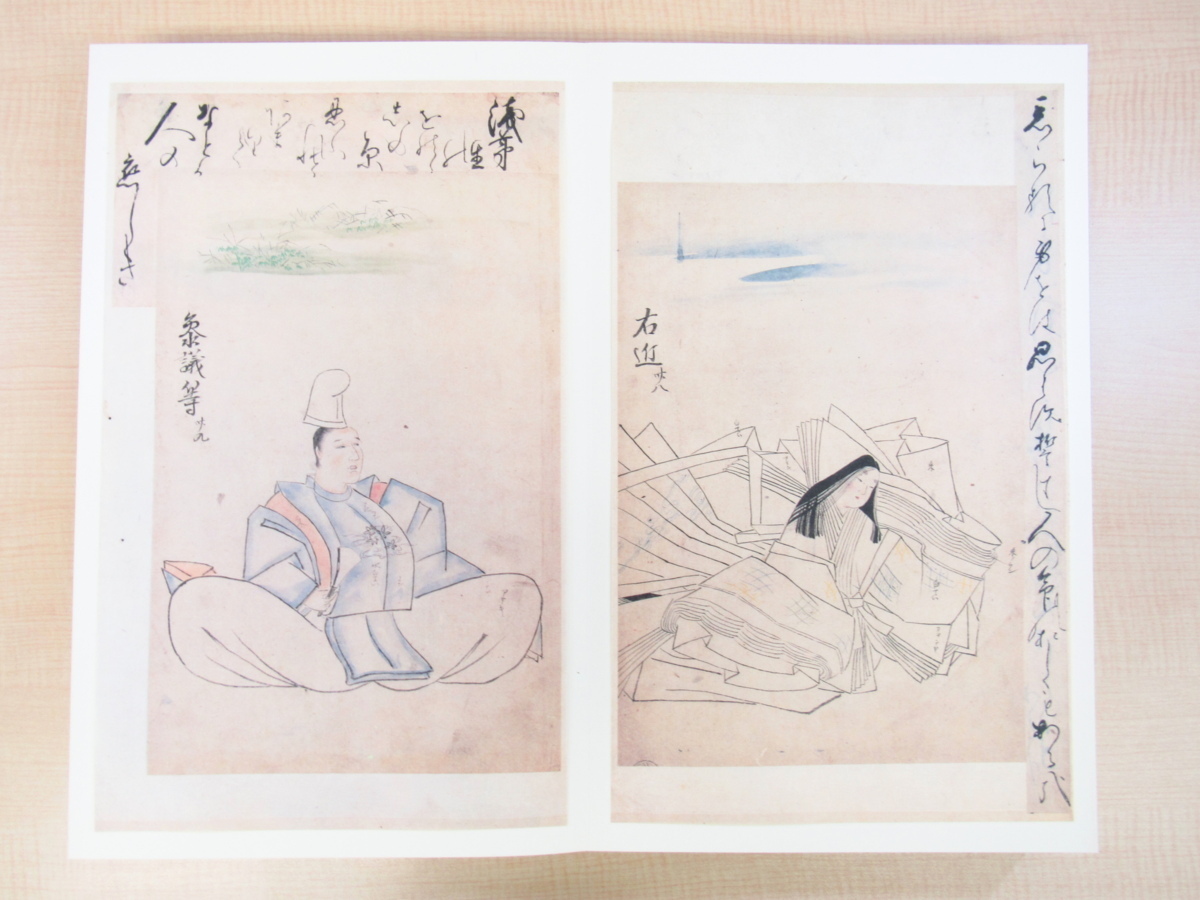 忘らるゝ身をは思はす誓てし人の命のおしくもあるかな
右近 卅八
浅茅
生の
をのゝ
志の
原
忍ふ
れと
あま
りて
なとか
人の
恋しき
参議等 卅九